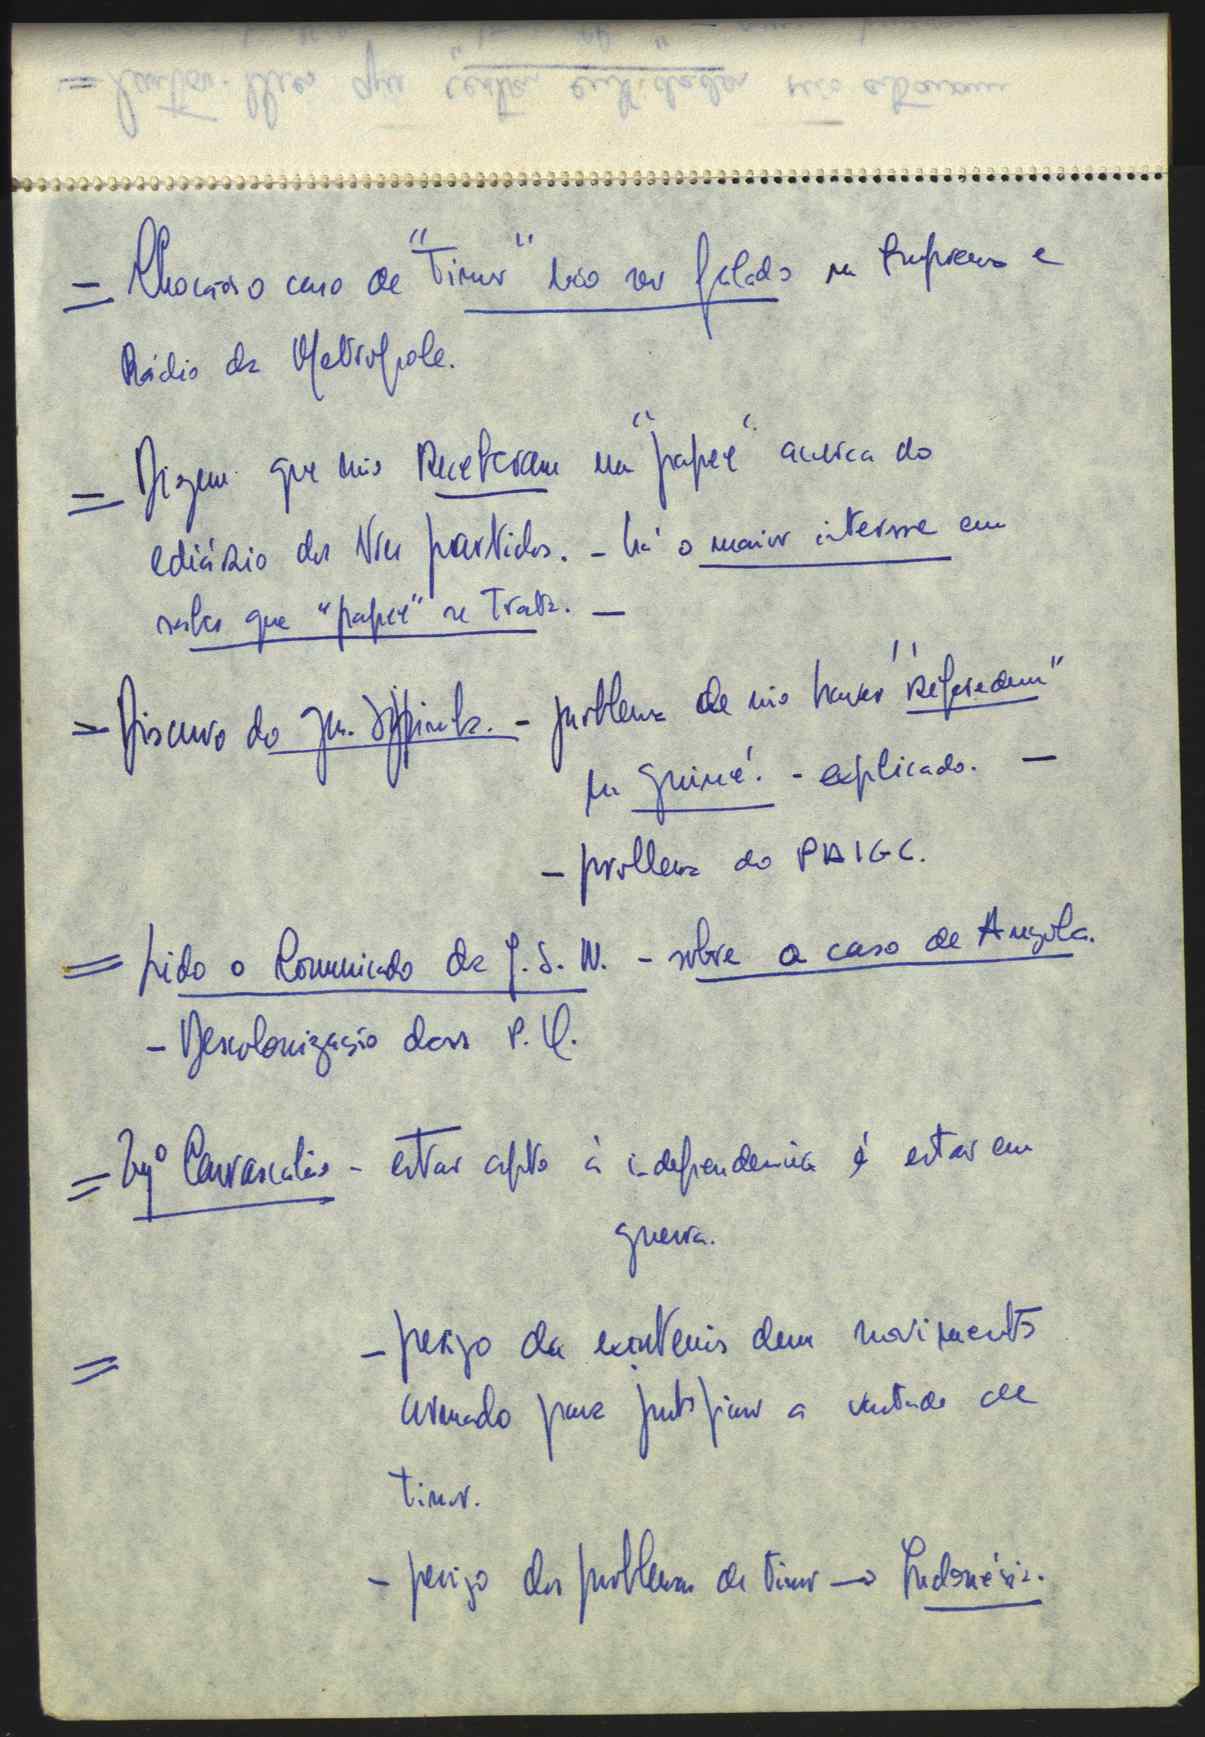 = Chocar-o o caso de "Timor" não ser falado na Imprensa e
Rádio da Metropole.
= Dizem que não receberam um "papel" acerca do
ediário dos três partidos. - há o maior interesse em
saber que "papel" se trata. -
= Discurso do Gen. Spinola. - problema de não haver "Referedum"
na Guiné. - explicado. -
- problema do PAIGC.
= Lido o Comunicado da J. S. N. - sobre o caso de Angola.
- Descolonização dos P. U.
= Engº Carrascalão - estar apto à independencia é estar em
guerra.
= - perigo da existencia dum movimento
armado para justificar a vontade de
timor.
- perigo dos problemas de timor → Indonésia.